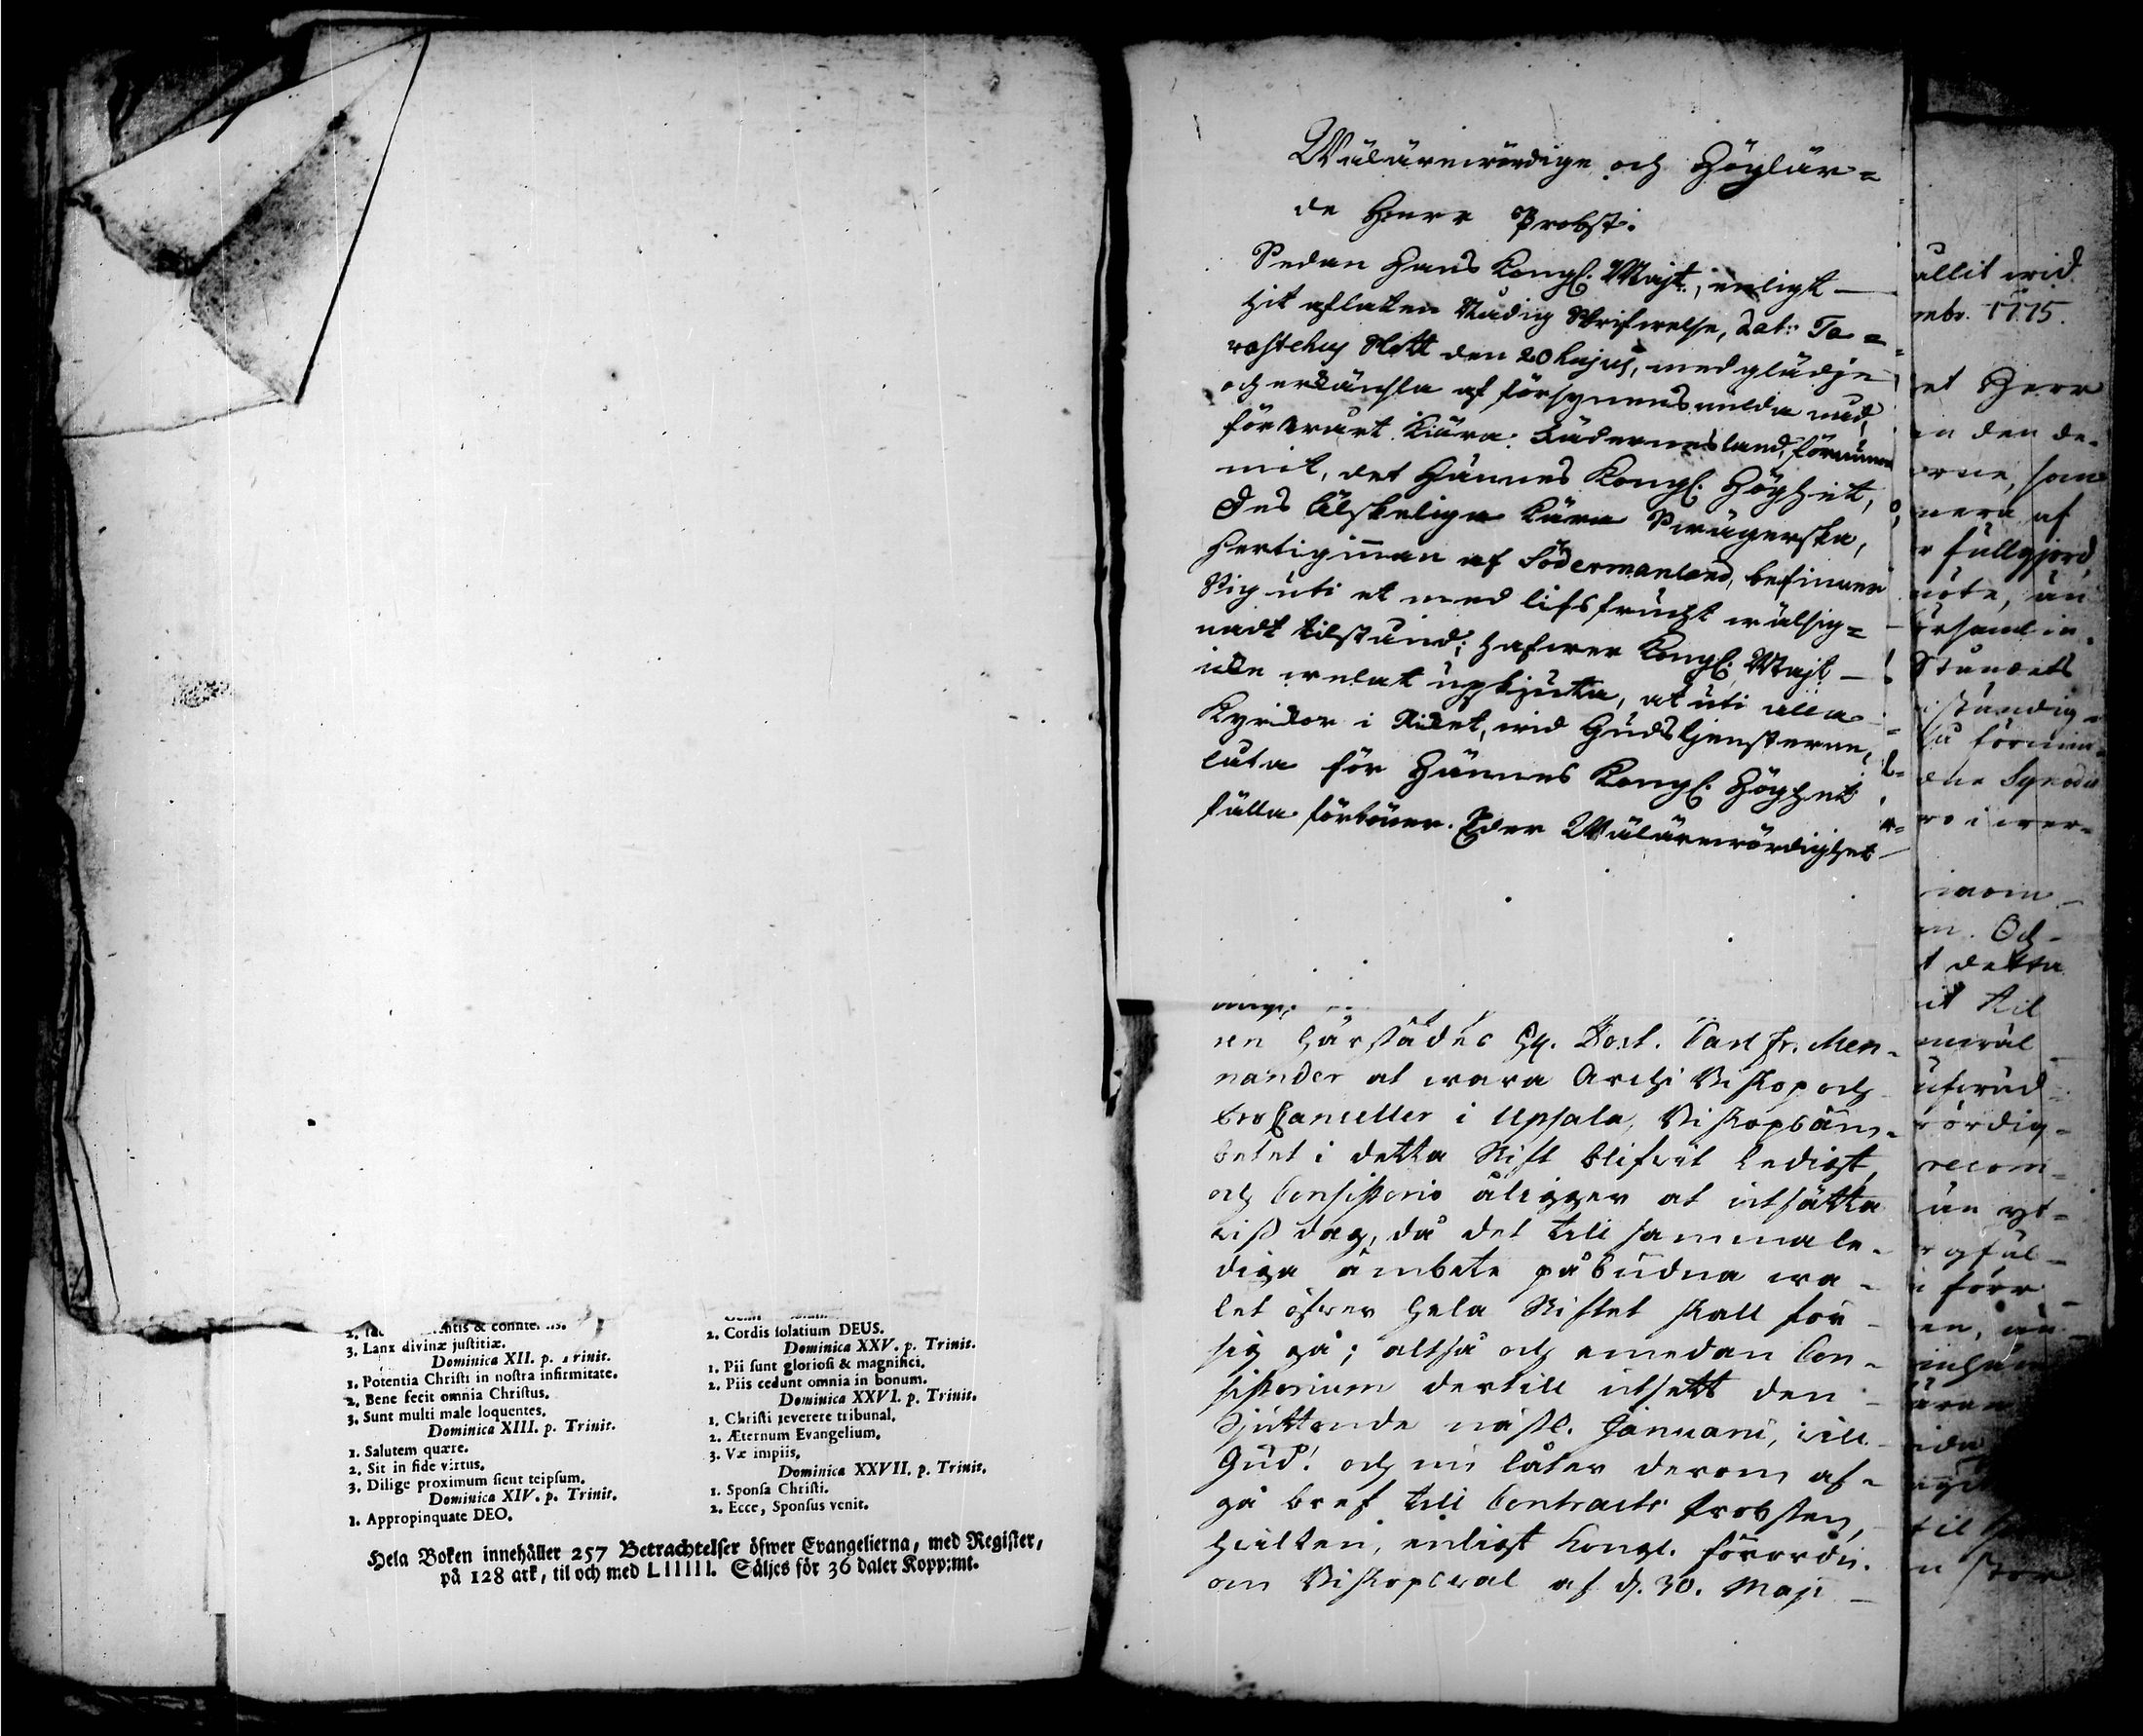 3. Lanx divinæ justitiæ.
Dominica XII. p. Trinit.
1. Potentia Christi in nostra infirmitate.
2. Bene fecit omnia Christus.
3. Sunt multi male loquentes.
Dominica XIII. p. Trinit.
1. Salutem quære.
2. Sit in fide virtus.
3. Dilige proximum sicut teipsum.
Dominica XIV. p. Trinit.
1. Appropinquate DEO.
2. Cordis solatium DEUS.
Dominica XXV. p. Trinit.
1. Pii sunt gloriosi & magnifici.
2. Piis cedunt omnia in bonum.
Dominica XXVI. p. Trinit.
1. Christi reverere tribunal.
2. Æternum Evangelium.
3. Væ impiis.
Dominica XXVII. p. Trinit.
1. Sponsa Christi.
2. Ecce, Sponsus venit.
Hela Boken innehåller 257 Betrachtelser öfwer Evangelierna, med Register,
på 128 ark, til och med Llllll. Säljes för 36 daler Kopp:mt.
Wälärewördige och Höglär=
de Herr Probst.
Sedan Hans Kongl. Majt., enligt
hit aflåten Nådig Skrifwelse, dat: Ta=
wastehus Slott den 20 hujus, med glädje
och erkänsla af försynens milda nåd
för wårt kiära Fädernesland, förnum
mit, det Hännes Kongl. Höghet,
Des Älskeliga Kära Swägerska,
Hertiginnan af Södermanland, befinner
Sig uti et med lifsfrucht wälsig=
nadt tilstånd; hafwer Kongl. Majt
icke welat upskjuta, at uti alla
Kyrckor i Riket, wid Gudstjensterne,
låta för Hännes Kongl. Höghet
fälla förböner. Eder Wälärewördighet
ren härstädes H. Doct. Carl Fr. Men=
nander at wara Archi Biskop och
ProCanceller i Upsala, Biskopsäm=
betet i detta Stift blifwit ledigt,
och Consistorio åligger at utsätta
wiss dag, då det till samma le=
diga ämbete påbudna wa=
let öfwer hela Stiftet skall för
sig gå; altså och emedan Con=
sistorium dertill utsatt den
Sjuttonde näst. Januarii, will
Gud! och nu låter derom af=
gå bref till Contracts Probsten,
hwilken, enligt Kongl. förordn.
om Biskopswal af d. 30. Maji
allit wid
mbr. 1775.
et Herr
en den de=
orne, som
mera af
r fullgjord
möte, än
församlin=
Ståndets
ständig=
så förmin=
ne Synodo
ro i wer=
inom
m. Och
t detta
it til
wördig=
recom=
än yt=
i förr
en, än
til
n stor